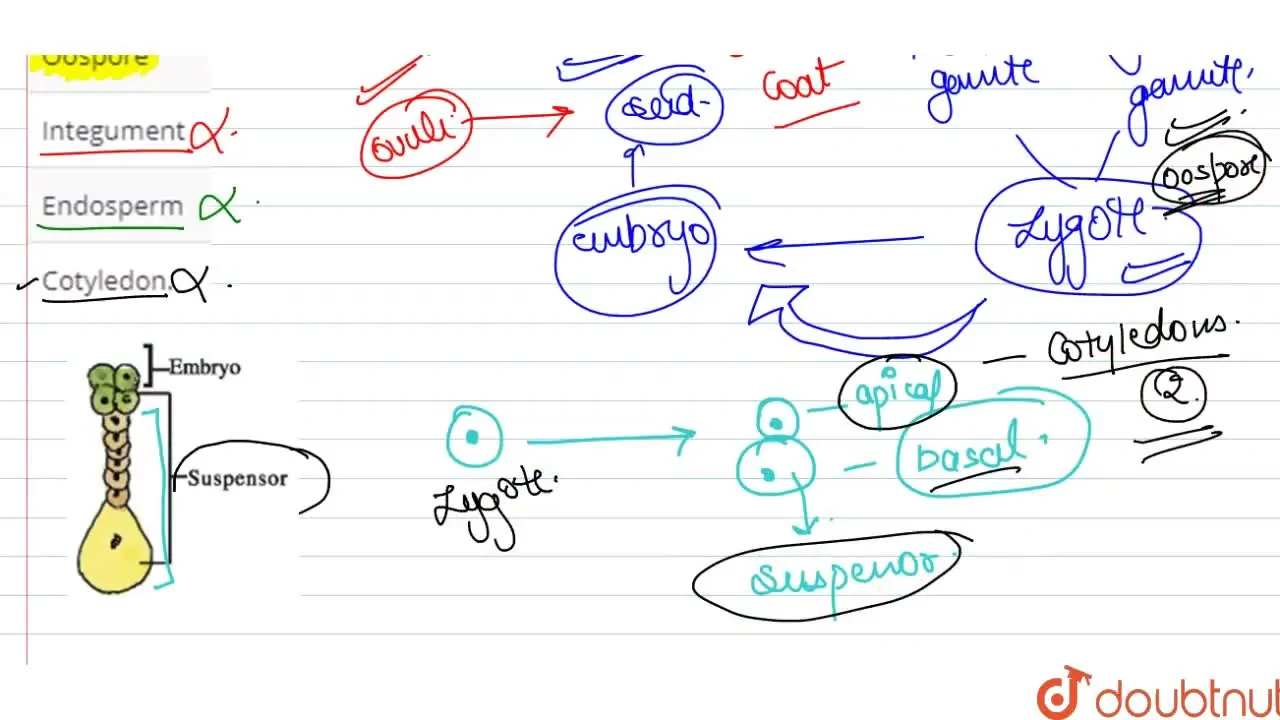 Oospore
Integument
Endosperm
Cotyledon.
ovule
seed
coat
gamete
gamete
oospore
zygote
embryo
cotyledons.
2
apical
basal
zygote
suspensor
Embryo
Suspensor
doubtnut